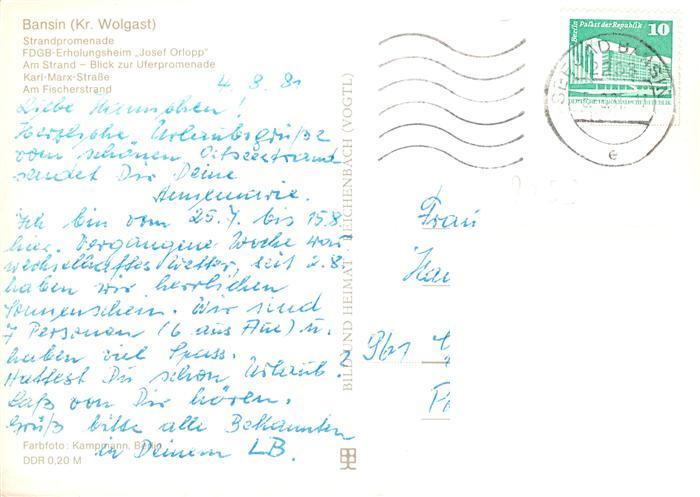 Bansin (Kr. Wolgast)
Strandpromenade
FDGB-Erholungsheim „Josef Orlopp"
Am Strand – Blick zur Uferpromenade
Karl-Marx-Straße
Am Fischerstrand
4.8.81
Liebe !
Herzliche Urlaubsgrüße
vom schönen Ostseestrand
sendet Dir Deine
Annemarie.
Ich bin vom 25.7. bis 15.8.
hier. Vergangene Woche war
wechselhaftes Wetter, seit 2.8.
haben wir herrlichen
Sonnenschein. Wir sind
7 Personen (6 aus Aue) u.
haben viel Spass.
Hattest Du schon Urlaub?
Laß von Dir hören.
Grüß bitte alle Bekannten
in Deinem LB.
Farbfoto: Kampmann, Berlin
DDR 0,20 M
BILD UND HEIMAT REICHENBACH (VOGTL)
Berlin, Palast der Republik
10
DEUTSCHE DEMOKRATISCHE REPUBLIK
SEEBAD BANSIN
e
Frau